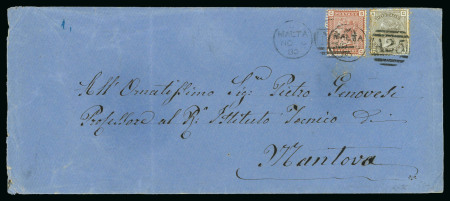 MALTA MALTA
A25
All' Ornatissimo Sig.r Pietro Genovesi
Professore al R. Istituto Tecnico di
Mantova